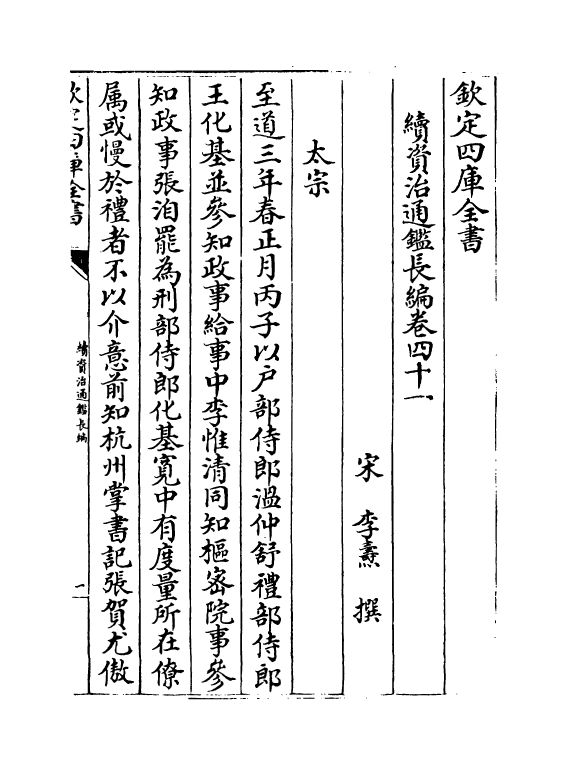 欽定四庫全書
續資治通鑑長編卷四十一
宋 李燾 撰
太宗
至道三年春正月丙子以户部侍郎溫仲舒禮部侍郎
王化基並參知政事給事中李惟清同知樞密院事參
知政事張洎罷為刑部侍郎化基寛中有度量所在僚
属或慢於禮者不以介意前知杭州掌書記張賀尤傲
欽定四庫全書
續資治通鑑長編
一